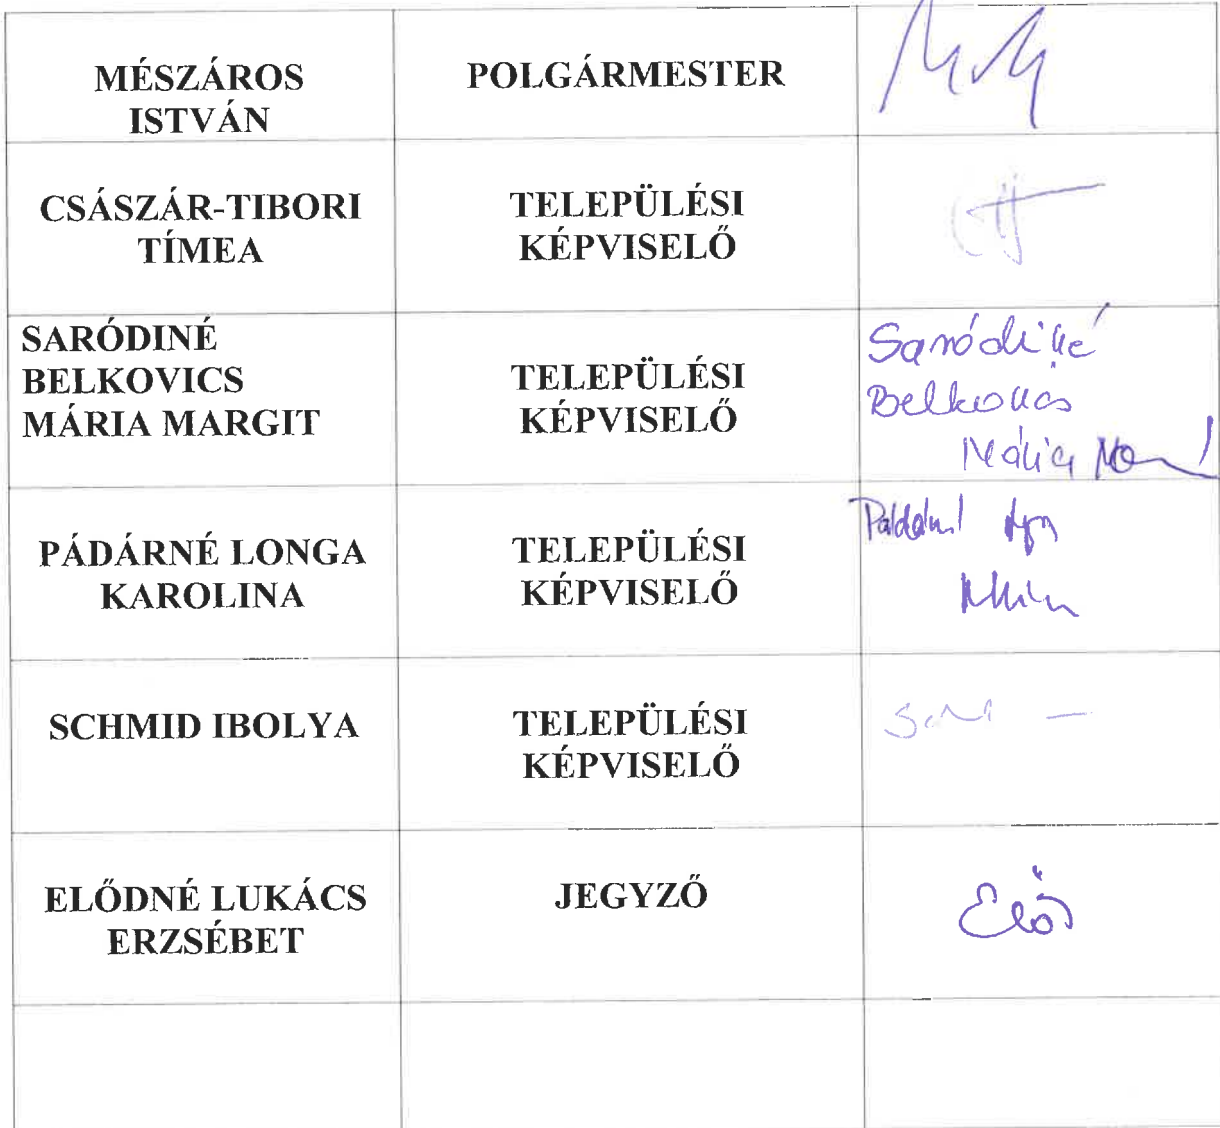 MÉSZÁROS
ISTVÁN
POLGÁRMESTER
CSÁSZÁR-TIBORI
TÍMEA
TELEPÜLÉSI
KÉPVISELŐ
SARÓDINÉ
BELKOVICS
MÁRIA MARGIT
TELEPÜLÉSI
KÉPVISELŐ
Saródiné
Belkovics
Mária
PÁDÁRNÉ LONGA
KAROLINA
TELEPÜLÉSI
KÉPVISELŐ
SCHMID IBOLYA
TELEPÜLÉSI
KÉPVISELŐ
ELŐDNÉ LUKÁCS
ERZSÉBET
JEGYZŐ